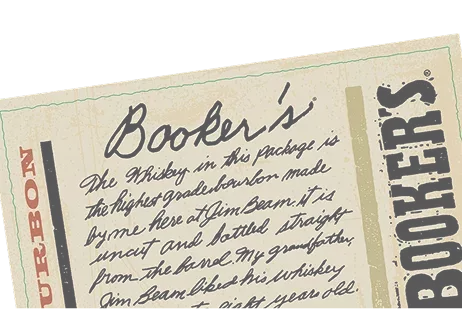 Booker's
The Whiskey in this package is
the highest grade bourbon made
by me here at Jim Beam it is
uncut and bottled straight
from the barrel. My grandfather,
Jim Beam liked his whiskey
eight years old.
URBON
BOOKER'S®